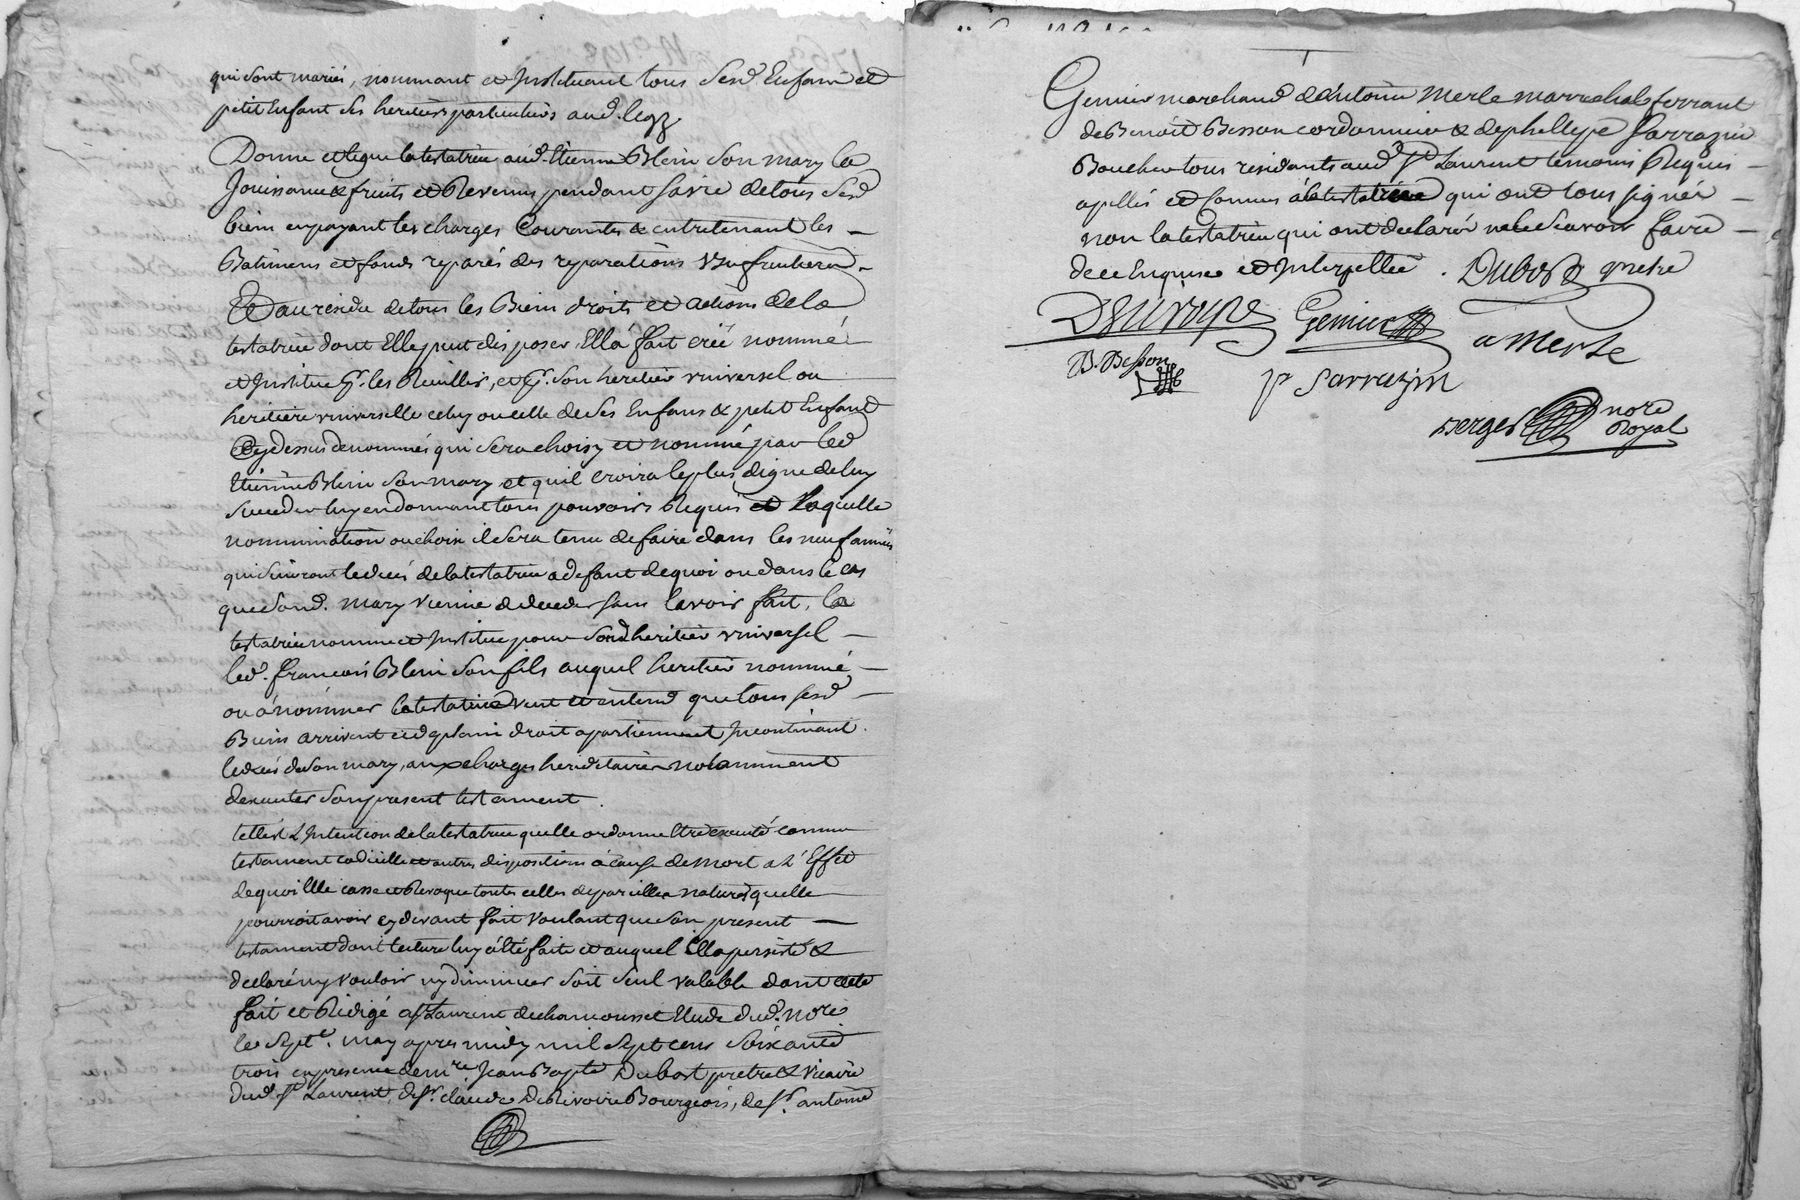 qui sont mariés, nommant et Instituant tous sesd. Enfans et
petit Enfant ses heritiers particuliers aud. legz.
Donne et legue latestatrice aud. Etienne Blein son mary la
Jouissance & fruits et Revenus pendant savie detous sesd
biens enpayant les charges Courantes & entretenant les –
Batimens et fonds reparés des reparations Usufruitieres.
Et au residu detous les Biens droits et actions dela
testatrice dont Elle peut disposer, Ell'a fait créé nommé
et Institue les et son heretier vniversel ou
heritiere vniverselle celuy oucelle deses Enfans & petit Enfant
Cy dessus denommés qui sera choisy et nommé par led
Etienne Blein son mary et quil croira leplus digne deluy
succeder luy endonnant tous pouvoirs Requis et Laquelle
nommination ouchoix ilsera tenu defaire dans les neuf années
qui suivront ledeces delatestatrice adefaut dequoi oudans le cas
que sond. mary vienne adeceder sans lavoir fait, la
testatrice nomme et Institue pour sond heritier vniversel –
led. francois Blein son fils auquel heritier nommé –
ou à nommer latestatrice veut et entend que tous sesd –
Biens arrivent et de plain droit apartiennent Incontinant
ledeces deson mary, aux charges hereditaires notamment
dexecuter son present testament.
telle est L'Intention de latestatrice quelle ordonne Etre executé comme
testament codicille et autres dispositions à cause de mort a L'Effet
dequoi Elle casse et Revoque toutes celles depareilles natures quelle
pourroit avoir cy devant fait voulant que son present –
testament dont lecture luy a été faite et auquel Ella persisté &
declaré ny vouloir ny diminuer soit seul valable dont acte
fait et Redigé a st Laurent dechamousset Etude dud. nore
le sept.e may apres midy mil sept cens soixante
trois enpresence de mre Jean Bapte Dubost pretre & vicaire
dud. st Laurent, de sr. claude DeRivoire Bourgeois, de sr. antoine
Genier marchand d'Antoine Merle marrechal ferrant
de Benoit Besson cordonnier & dephillipe Sarrazin
Boucher tous residants aud. st Laurent temoins Requis –
apellés et connus a latestatrice qui ont tous signés –
non latestatrice qui ont declaré ne le scavoir faire –
dece Enquise et Interpellée. Dubost pretre
Genier
a Merle
B. Besson
p Sarrazin
nore
Royal